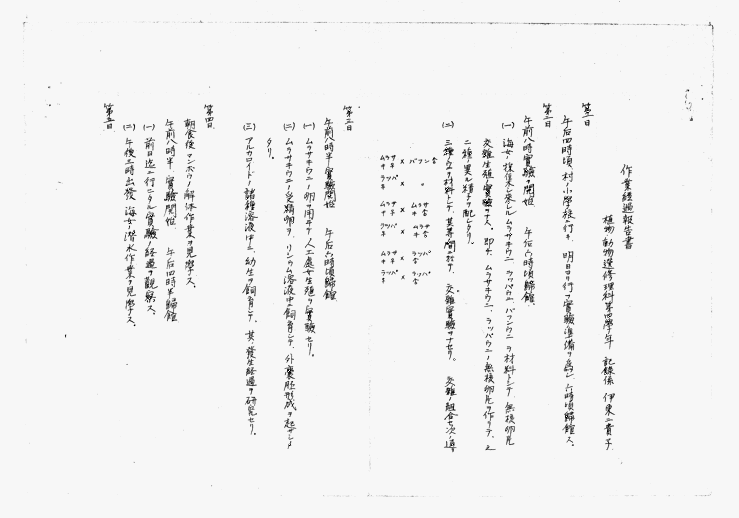 作業経過報告書
植物動物選修理科第四学年 記録係 伊東二貴子
第一日
午后四時頃 村ノ小學校ニ行キ、明日ヨリ行フ實驗準備ヲ為シ、六時頃歸館ス。
第二日
午前八時實驗ヲ開始 午后六時頃歸館。
(一) 海女ノ採集シ來レルムラサキウニ ラッパウニ、バフンウニ ヲ材料トシテ 無核卵片
交雜生殖ノ實驗ヲナス。即チ、ムラサキウニ、ラッパウニノ無核卵片ヲ作リテ、之
ニ種ノ異ル精子ヲ配シタリ。
(二) 三種ノウニヲ材料トシテ、其等間ニ於テ、交雜實驗ヲナセリ。 交雜ノ組合セ次ノ通
ムラサキ♀ × バフン♂
ラッパ♀ × 〃
ムラサキ♀ × ムラサキ♂
ラッパ♀ × ムラサキ♂
ムラサキ♀ × ラッパ♂
ラッパ♀ × ラッパ♂
第三日
午前八時半 實驗開始 午后六時頃歸館
(一) ムラサキウニノ卵ヲ用ヰテ 人工處女生殖ヲ實驗セリ。
(二) ムラサキウニノ受精卵ヲ、リシウム溶液中ニ飼育シテ、外囊胚形成ヲ起サシメ
タリ。
(三) アルカロイドノ諸種溶液中ニ、幼生ヲ飼育シテ、其ノ發生經過ヲ研究セリ。
第四日
朝食後 マンボウノ解体作業ヲ見學ス。
午前八時半 實驗開始 午后四時半歸館
(一) 前日迄ニ行ヒタル實驗ノ經過ヲ觀察ス。
(二) 午後二時出發 海女ノ潛水作業ヲ見學ス。
第五日